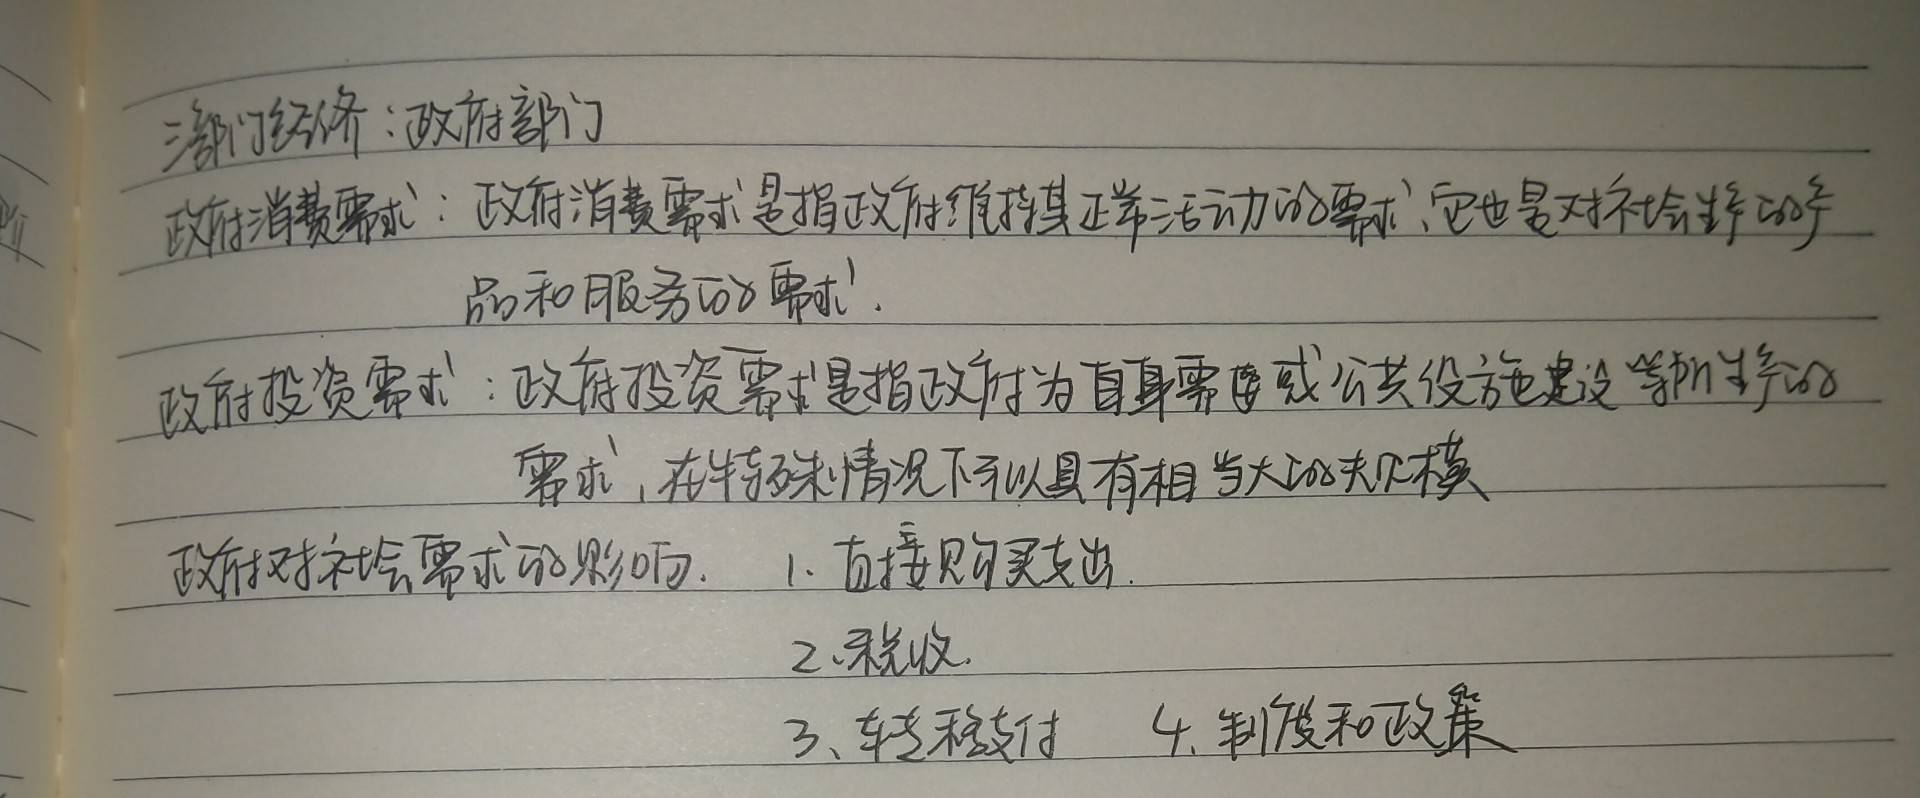 三部门经济：政府部门
政府消费需求：政府消费需求是指政府维持其正常活动的需求、它也是对社会生产的产
品和服务的需求.
政府投资需求：政府投资需求是指政府为自身需要或公共设施建设等所生产的
需求，在特殊情况下可以具有相当大的规模
政府对社会需求的影响. 1. 直接购买支出.
2、税收.
3、转移支付 4. 制度和政策